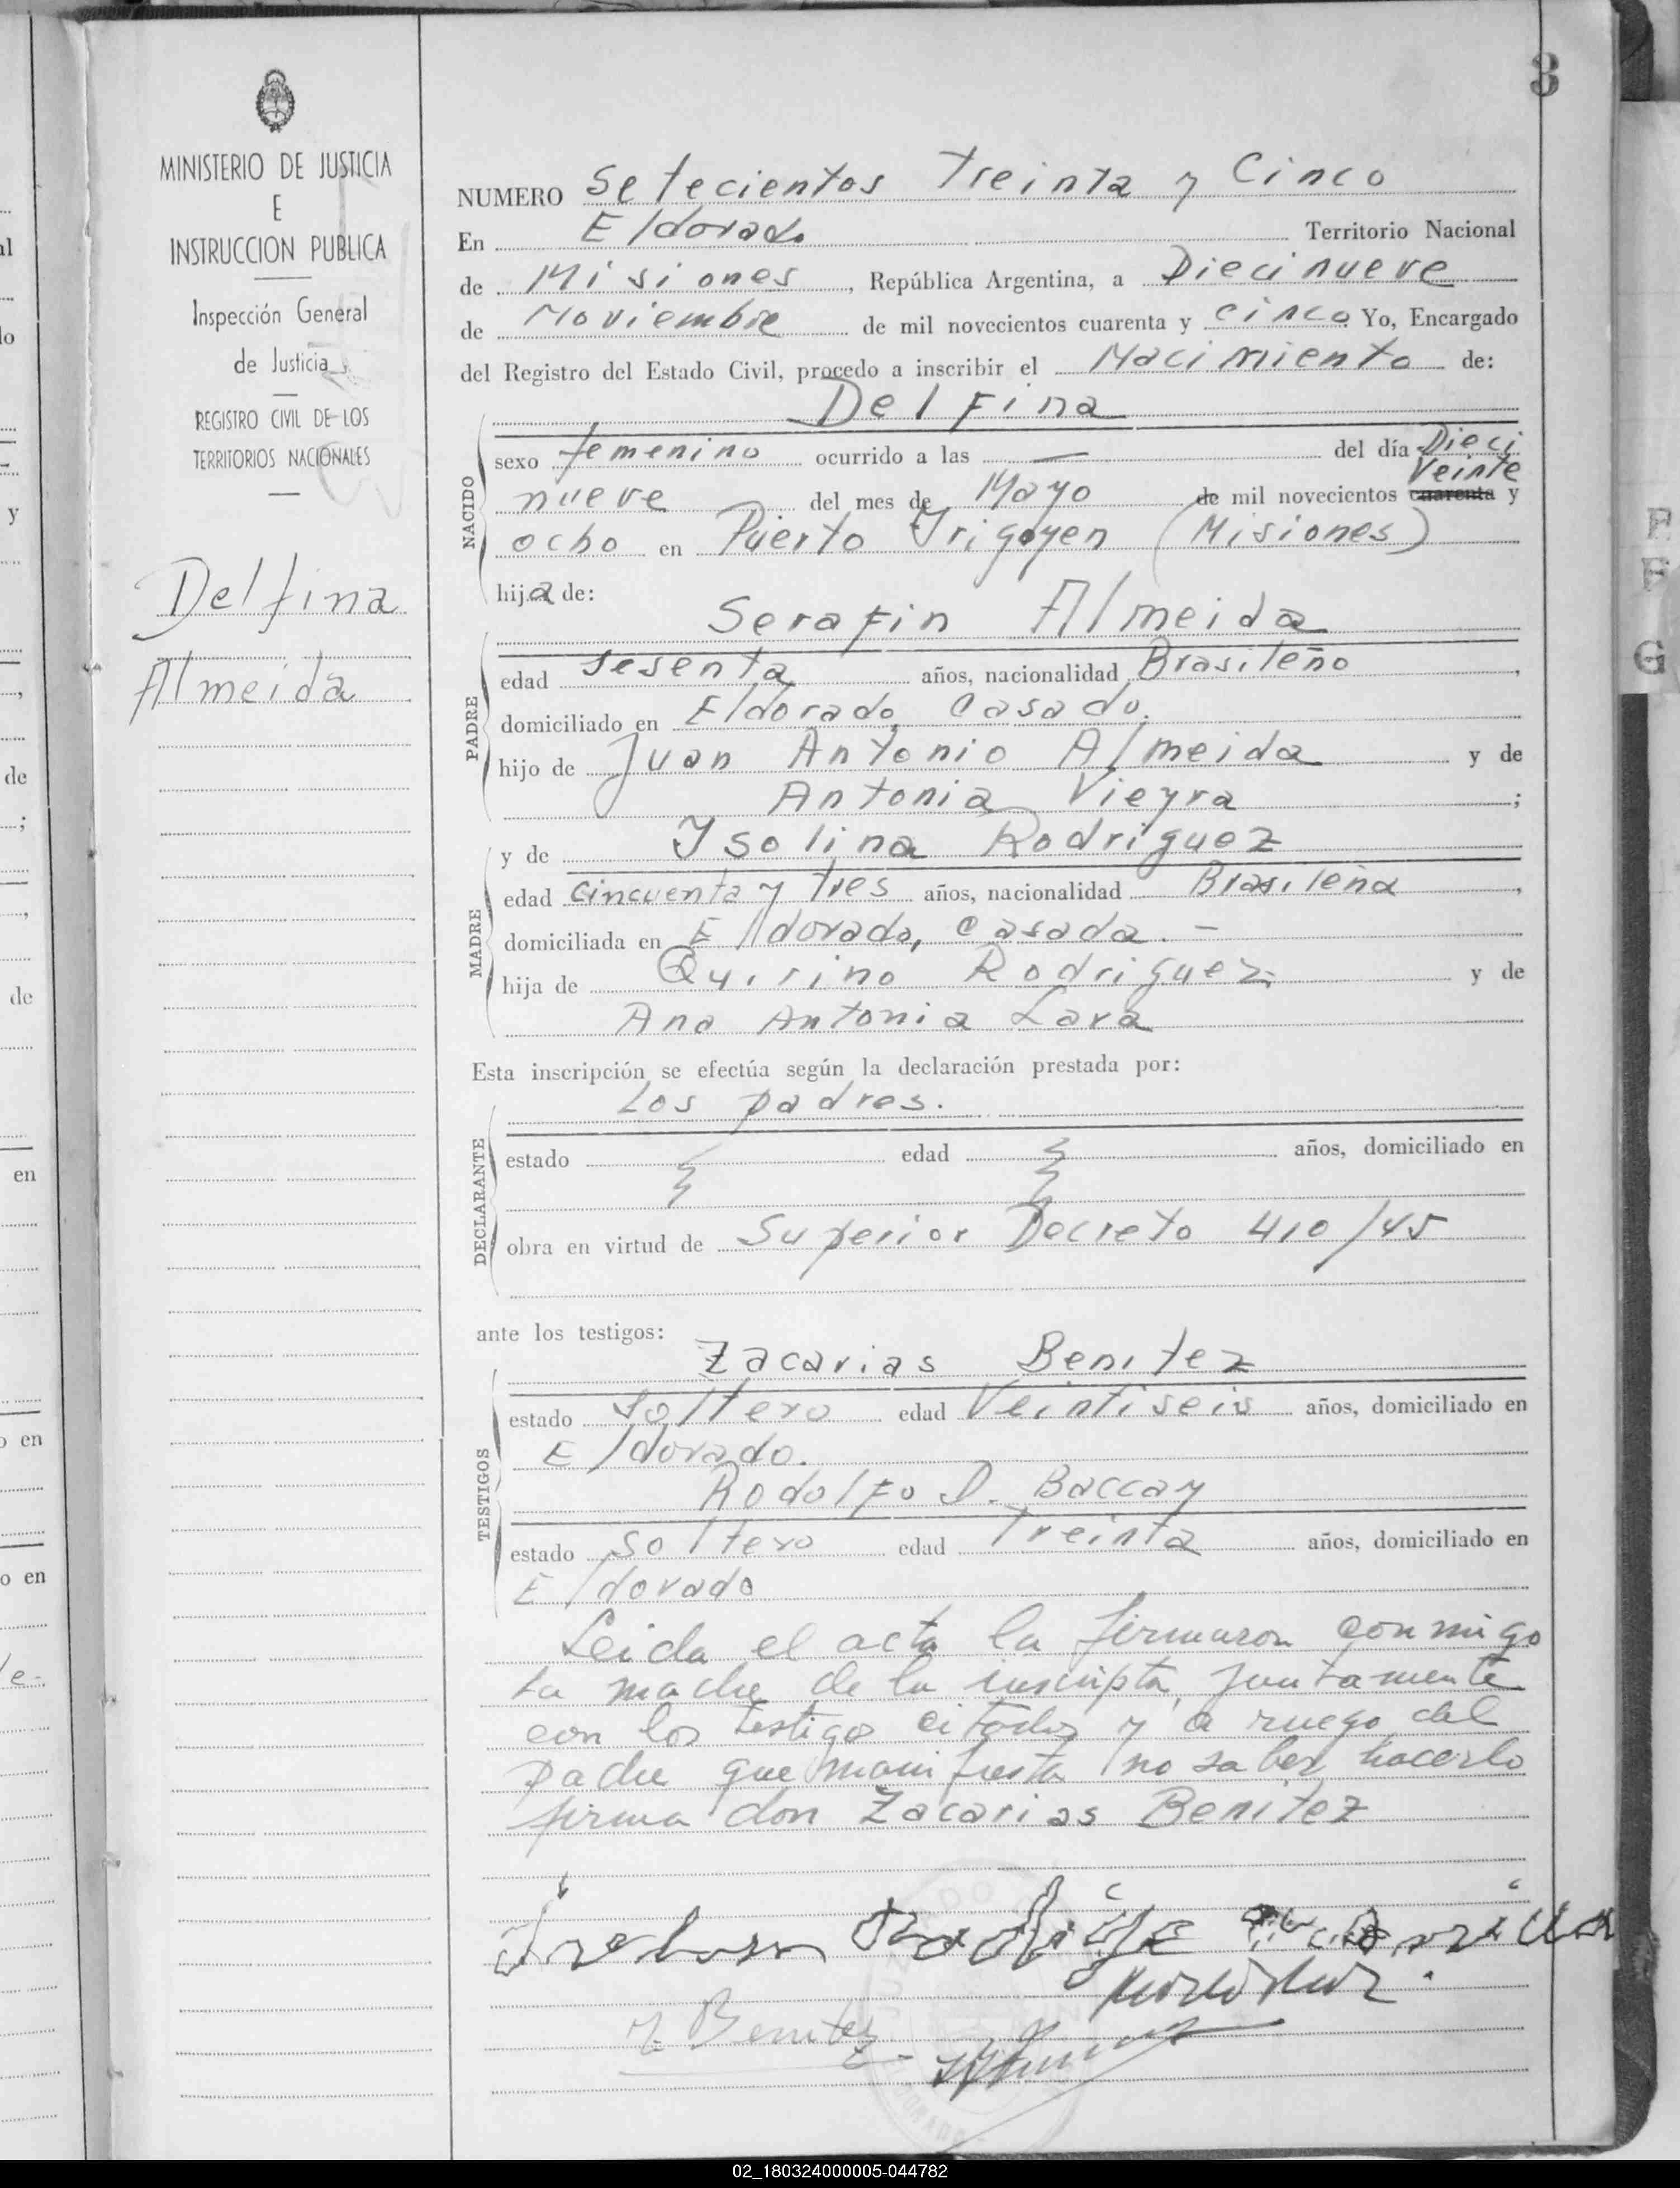 3
MINISTERIO DE JUSTICIA
E
INSTRUCCION PUBLICA
Inspección General
de Justicia
REGISTRO CIVIL DE LOS
TERRITORIOS NACIONALES
Delfina
Almeida
NUMERO Setecientos Treinta y Cinco
En Eldorado Territorio Nacional
de Misiones, República Argentina, a Diecinueve
de Noviembre de mil novecientos cuarenta y cinco Yo, Encargado
del Registro del Estado Civil, procedo a inscribir el Nacimiento de:
Delfina
NACIDO
sexo femenino ocurrido a las — del día Dieci
nueve del mes de Mayo de mil novecientos cuarenta Veinte y
ocho en Puerto Yrigoyen (Misiones)
hija de:
Serafin Almeida
PADRE
edad sesenta años, nacionalidad Brasileño,
domiciliado en Eldorado, Casado.
hijo de Juan Antonio Almeida y de
Antonia Vieyra;
y de Ysolina Rodriguez
MADRE
edad cincuenta y tres años, nacionalidad Brasileña,
domiciliada en Eldorado, Casada. -
hija de Quirino Rodriguez y de
Ana Antonia Lara
Esta inscripción se efectúa según la declaración prestada por:
Los padres.
DECLARANTE
estado edad años, domiciliado en
obra en virtud de Superior Decreto 410/45
ante los testigos:
Zacarias Benitez
TESTIGOS
estado Soltero edad Veintiseis años, domiciliado en
Eldorado.
Rodolfo D. Baccay
estado Soltero edad Treinta años, domiciliado en
Eldorado
Leida el acta la firmaron conmigo
la madre de la inscripta, juntamente
con los testigo citados y a ruego del
padre que manifiesta no saber hacerlo
firma don Zacarias Benitez
Z. Benitez
02_180324000005-044782